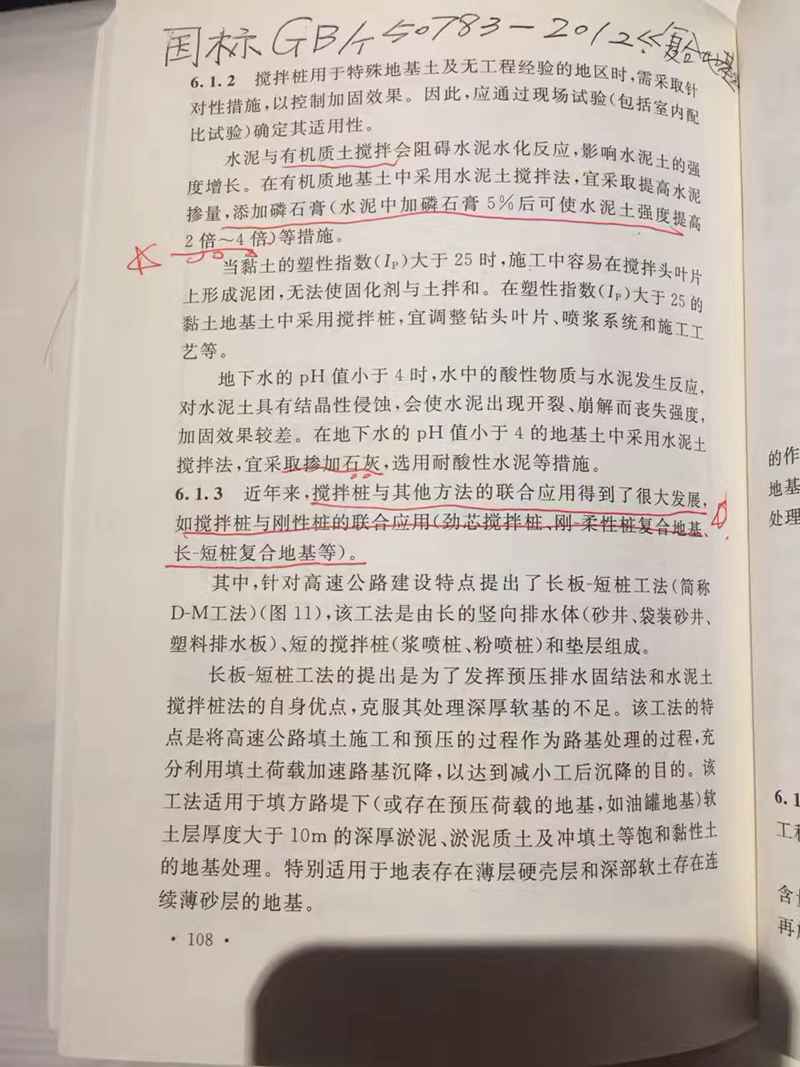 国标GB/T 50783-2012《复合地基
6.1.2 搅拌桩用于特殊地基土及无工程经验的地区时,需采取针
对性措施,以控制加固效果。因此,应通过现场试验(包括室内配
比试验)确定其适用性。
水泥与有机质土搅拌会阻碍水泥水化反应,影响水泥土的强
度增长。在有机质地基土中采用水泥土搅拌法,宜采取提高水泥
掺量,添加磷石膏(水泥中加磷石膏5%后可使水泥土强度提高
2倍~4倍)等措施。
当黏土的塑性指数(IP)大于25时,施工中容易在搅拌头叶片
上形成泥团,无法使固化剂与土拌和。在塑性指数(IP)大于25的
黏土地基土中采用搅拌桩,宜调整钻头叶片、喷浆系统和施工工
艺等。
地下水的pH值小于4时,水中的酸性物质与水泥发生反应,
对水泥土具有结晶性侵蚀,会使水泥出现开裂、崩解而丧失强度,
加固效果较差。在地下水的pH值小于4的地基土中采用水泥土
搅拌法,宜采取掺加石灰,选用耐酸性水泥等措施。
6.1.3 近年来,搅拌桩与其他方法的联合应用得到了很大发展,
如搅拌桩与刚性桩的联合应用(劲芯搅拌桩、刚-柔性桩复合地基、
长-短桩复合地基等)。
其中,针对高速公路建设特点提出了长板-短桩工法(简称
D-M工法)(图11),该工法是由长的竖向排水体(砂井、袋装砂井、
塑料排水板)、短的搅拌桩(浆喷桩、粉喷桩)和垫层组成。
长板-短桩工法的提出是为了发挥预压排水固结法和水泥土
搅拌桩法的自身优点,克服其处理深厚软基的不足。该工法的特
点是将高速公路填土施工和预压的过程作为路基处理的过程,充
分利用填土荷载加速路基沉降,以达到减小工后沉降的目的。该
工法适用于填方路堤下(或存在预压荷载的地基,如油罐地基)软
土层厚度大于10m的深厚淤泥、淤泥质土及冲填土等饱和黏性土
的地基处理。特别适用于地表存在薄层硬壳层和深部软土存在连
续薄砂层的地基。
· 108 ·
的作
地基
处理
6.1
工程
含量
再